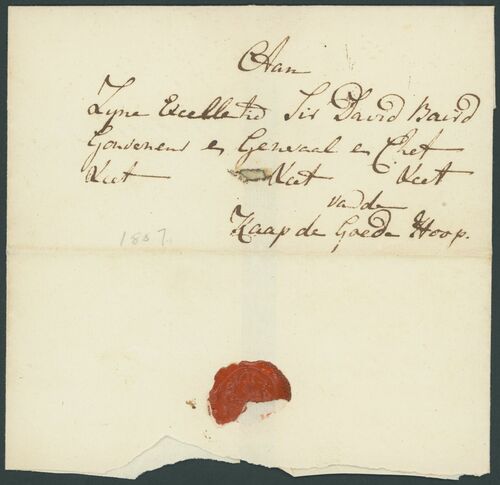 Aan
Zyne Excellentie Sir David Baird
Gouverneur en Generaal en Chef
&cet &cet &cet
van de
Kaap de Goede Hoop.
1807.